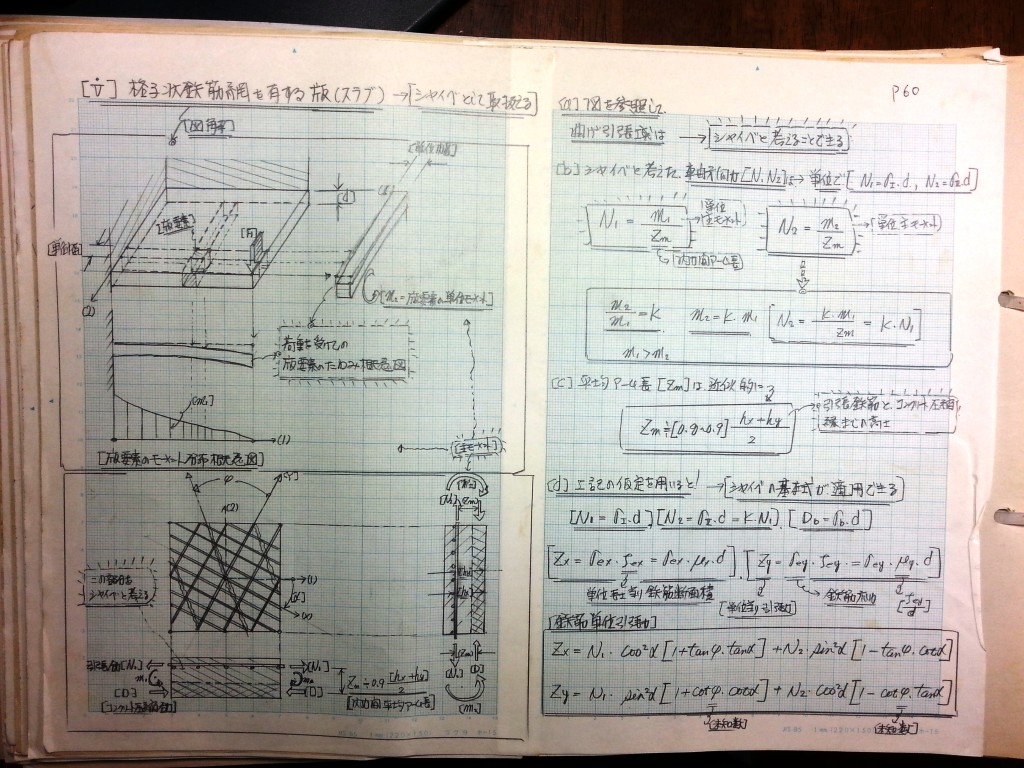 [V̇] 格子状鉄筋網を有する版(スラブ) →[シャイベとして取扱える]
[図解]
[単位幅]
(2)
[d]
[版要素]
[P]
[単位幅]
(2)
[m₂=版要素の単位モーメント]
荷重を受けての
版要素のたわみ相光図
[m₁]
(1)
[版要素のモーメント分布相光図]
[主モーメント]
φ
(Y)
(2)
(1)
[α]
(x)
この部分を
シャイベと考える
引張合力[N₁]
[N₁]
m₁
[D]
[D]
[コンクリート圧縮合力]
Zm≒0.9 [hx+hy]/2
[内力間平均アーム長]
[N₂]
[Zm]
[hx]
[hy]
[Zm]
[N₂]
[D]
[m₂]
P60
(a) 図を参照して
曲げ引張域は → [シャイベと考えることできる]
(b) シャイベと考えた, 軸方向力[N₁N₂]は→ 単位で [N₁=σI.d, N₂=σII.d]
N₁ = m₁/Zm
[単位主モーメント]
[内力間アーム長]
N₂ = m₂/Zm
[単位主モーメント]
m₂/m₁ = K m₂=K.m₁ [N₂ = K.m₁/Zm = K.N₁]
m₁>m₂
(c) 平均アーム長[Zm]は, 近似的に
Zm≒[0.8~0.9] hx+hy/2
引張鉄筋と, コンクリート圧縮
(d) 上記の仮定を用いると! →[シャイベの基本式が適用できる]
[N₁=σI.d] [N₂=σII.d=K.N₁]. [Db=σb.d]
[Zx=σex.fex=σex.μx.d]. [Zy=σey.fey=σey.μy.d]
単位長さ当り鉄筋断面積
[単位当り引張力]
鉄筋応力
[fey/d]
[鉄筋単位引張力]
Zx = N₁. cos²α [1+tanφ.tanα] +N₂.sin²α [1-tanφ.cotα]
Zy = N₁. sin²α [1+cotφ.cotα] + N₂.cos²α [1-cotφ.tanα]
[未知数]
[未知数]